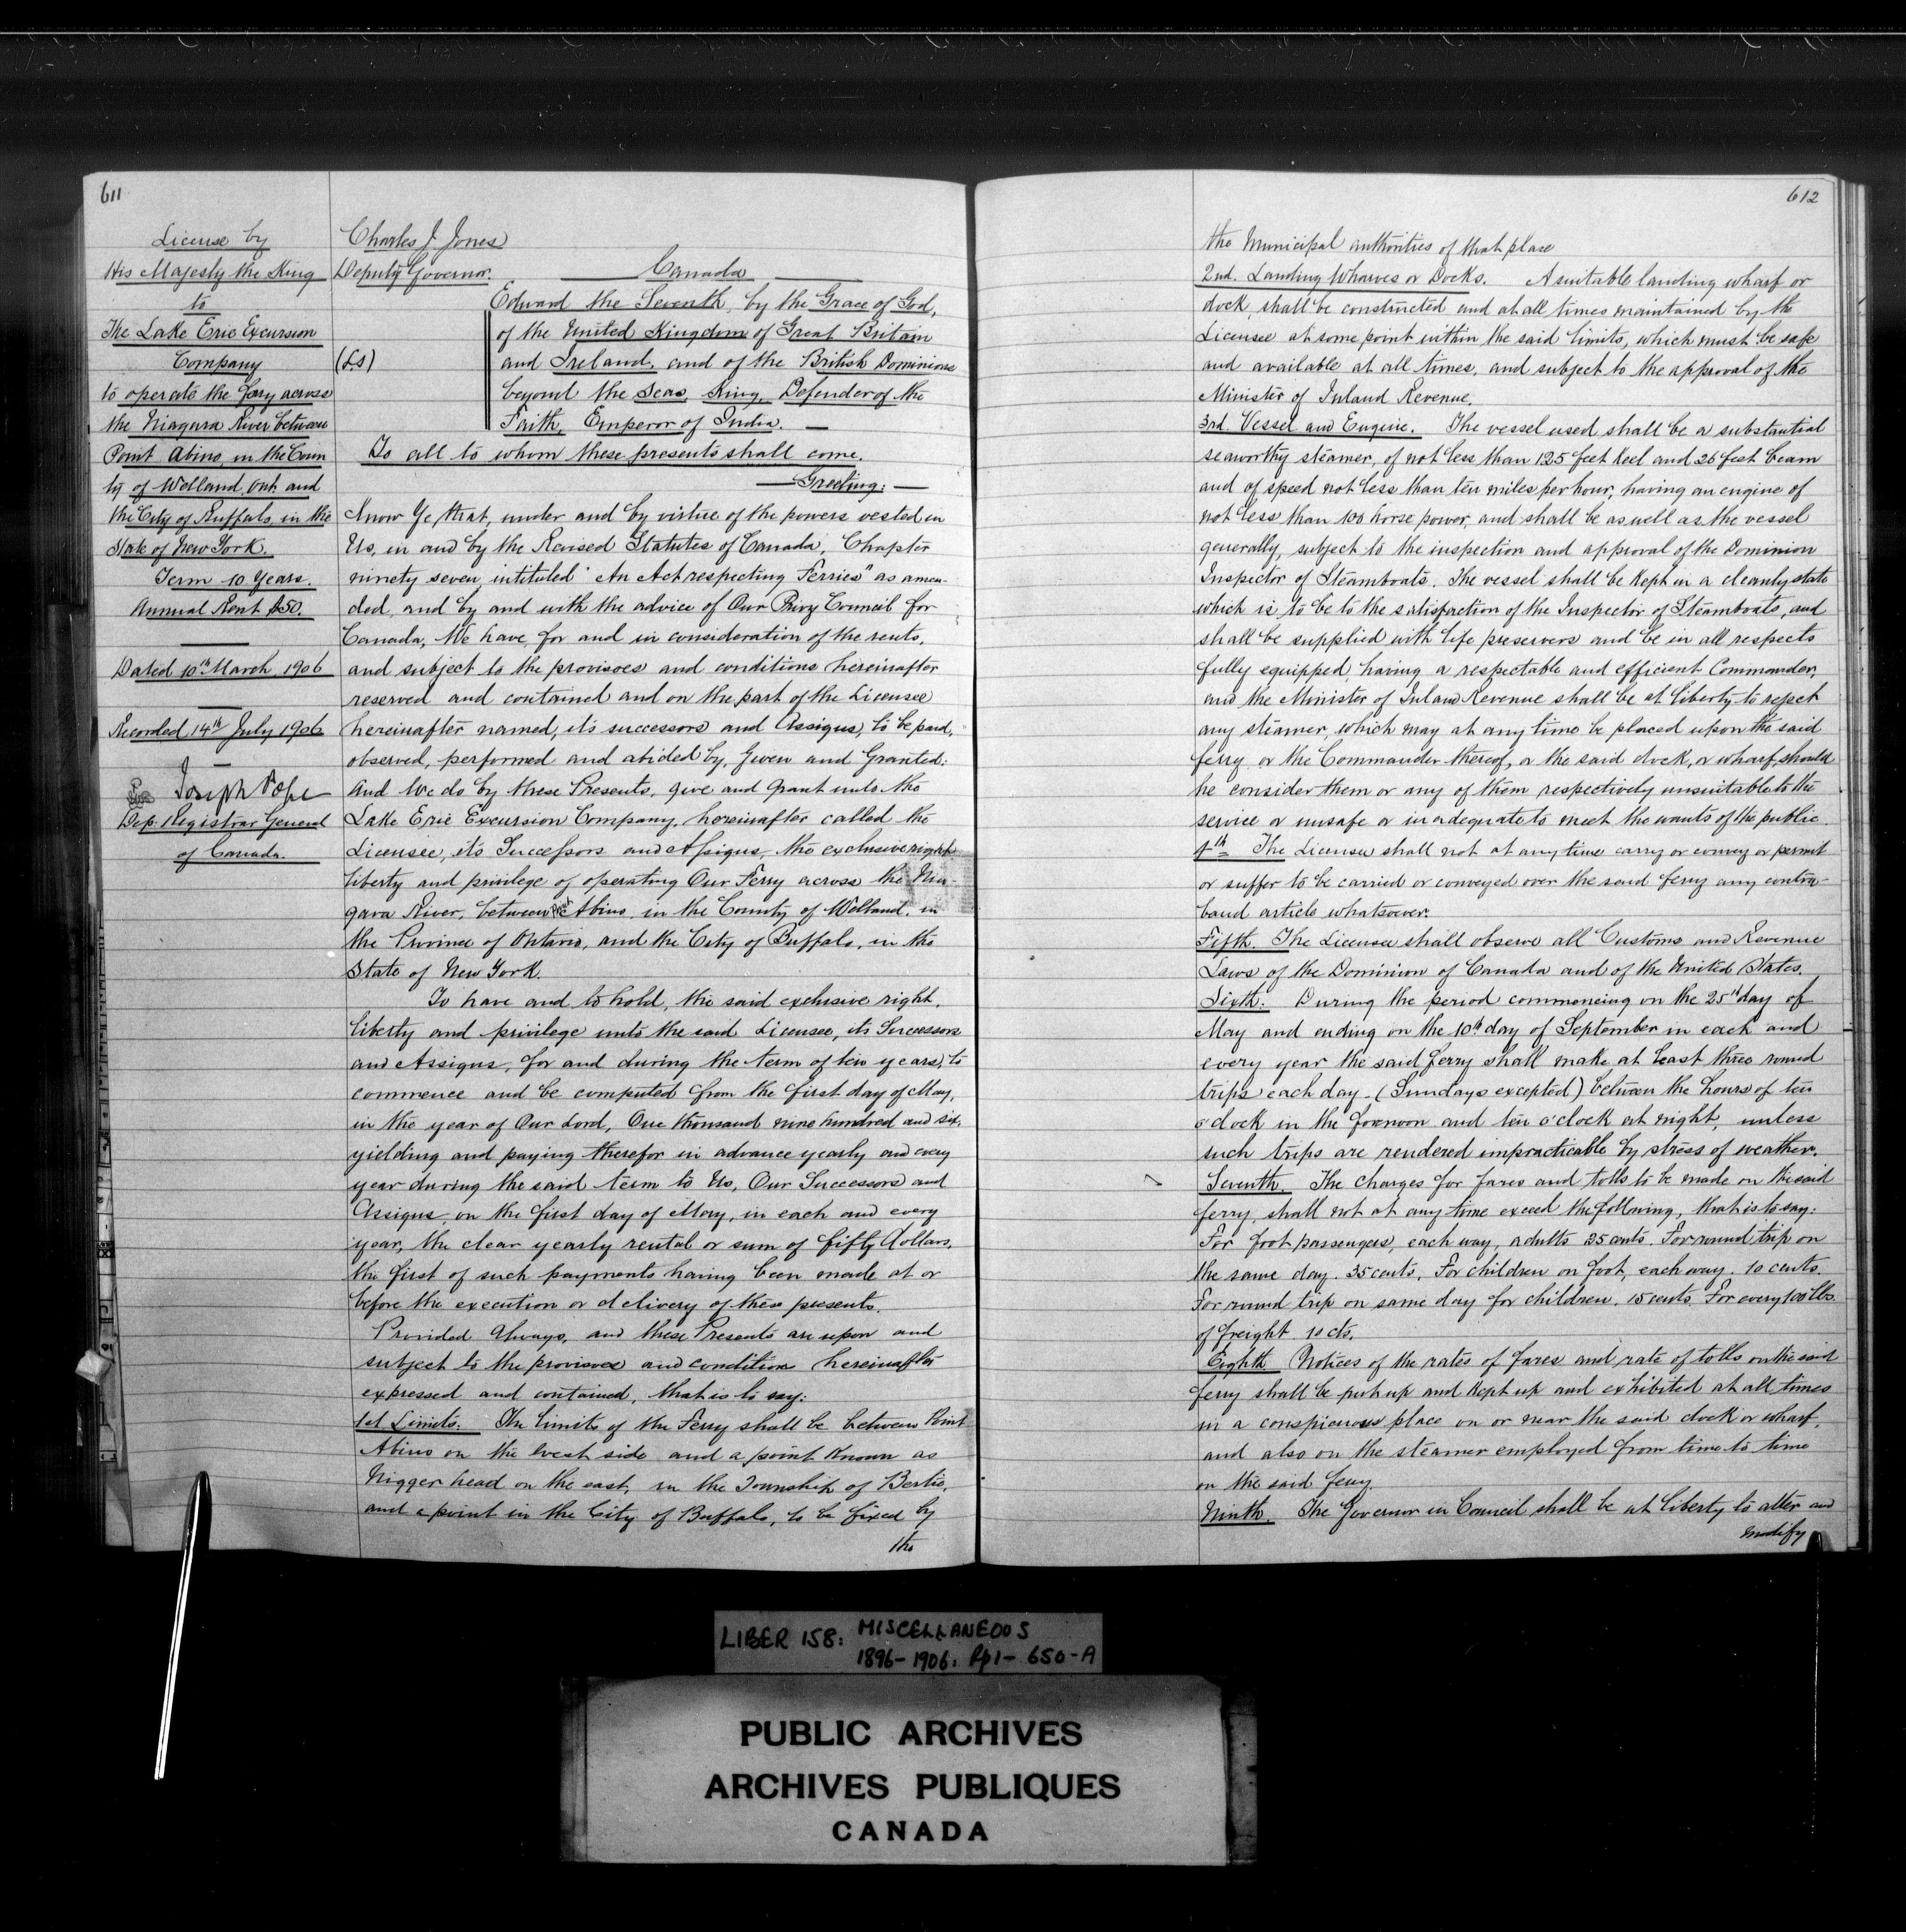 611
License by
His Majesty the King
to
The Lake Erie Excursion
Company
to operate the ferry across
the Niagara River between
Point Abino, in the Coun
ty of Welland, Ont. and
the City of Buffalo, in the
State of New York.
Term 10 Years.
Annual Rent $50.
Dated 10th March, 1906
Recorded 14th July 1906
Joseph Pope
Dep. Registrar General
of Canada.
Charles J. Jones
Deputy Governor.
Canada
(LS)
Edward the Seventh, by the Grace of God,
of the United Kingdom of Great Britain
and Ireland, and of the British Dominions
beyond the Seas, King, Defender of the
Faith, Emperor of India.
To all to whom these presents shall come.
Greeting:
Know Ye, that, under and by virtue of the powers vested in
Us, in and by the Revised Statutes of Canada, Chapter
ninety seven, intituled "An Act respecting Ferries" as amen-
ded, and by and with the advice of Our Privy Council for
Canada, We have, for and in consideration of the rents,
and subject to the provisoes and conditions hereinafter
reserved and contained and on the part of the Licensee
hereinafter named, its successors and Assigns, to be paid,
observed, performed and abided by, Given and Granted:
And We do by these Presents, give and Grant unto the
Lake Erie Excursion Company, hereinafter called the
Licensee, its Successors and Assigns, the exclusive right
liberty and privilege of operating Our Ferry across the Nia
gara River, between Point Abino, in the County of Welland, in
the Province of Ontario, and the City of Buffalo, in the
State of New York.
To have and to hold, the said exclusive right,
liberty and privilege unto the said Licensee, its Successors
and Assigns, for and during the term of ten years, to
commence and be computed from the first day of May,
in the year of Our Lord, One thousand nine hundred and six,
yielding and paying therefor in advance yearly and every
year during the said term to Us, Our Successors and
Assigns, on the first day of May, in each and every
year, the clear yearly rental or sum of fifty dollars,
the first of such payments having been made at or
before the execution or delivery of these presents.
Provided Always, and these Presents are upon and
subject to the provisoes and condition hereinafter
expressed and contained, that is to say:
1st Limits: The limits of the Ferry shall be between Point
Abino on the west side and a point known as
Nigger head on the east, in the Township of Bertie,
and a point in the City of Buffalo, to be fixed by
the
612
the Municipal authorities of that place
2nd. Landing Wharves or Docks. A suitable landing wharf or
dock, shall be constructed and at all times maintained by the
Licensee at some point within the said limits, which must be safe
and available at all times, and subject to the approval of the
Minister of Inland Revenue.
3rd. Vessel and Engine. The vessel used shall be a substantial
seaworthy steamer, of not less than 125 feet keel and 26 feet beam
and of speed not less than ten miles per hour, having an engine of
not less than 100 horse power, and shall be as well as the vessel
generally, subject to the inspection and approval of the Dominion
Inspector of Steamboats. The vessel shall be kept in a cleanly state
which is to be to the satisfaction of the Inspector of Steamboats, and
shall be supplied with life preservers and be in all respects
fully equipped, having a respectable and efficient Commander,
and the Minister of Inland Revenue shall be at liberty to reject
any steamer, which may at any time be placed upon the said
ferry or the Commander thereof, or the said dock, or wharf, should
he consider them or any of them respectively unsuitable to the
service or unsafe or inadequate to meet the wants of the public.
4th The Licensee shall not at any time carry or convey or permit
or suffer to be carried or conveyed over the said ferry any contra-
band article whatsoever.
Fifth. The Licensee shall observe all Customs and Revenue
Laws of the Dominion of Canada and of the United States.
Sixth. During the period commencing on the 25th day of
May and ending on the 10th day of September in each and
every year the said ferry shall make at least three round
trips each day. (Sundays excepted) between the hours of ten
o'clock in the forenoon and ten o'clock at night, unless
such trips are rendered impracticable by stress of weather.
Seventh. The charges for fares and tolls to be made on the said
ferry, shall not at any time exceed the following, that is to say:
For foot passengers, each way, adults 25 cents. For round trip on
the same day. 35 cents. For children on foot, each way. 10 cents.
For round trip on same day for children. 15 cents. For every 100 lbs.
of freight 10 cts.
Eighth Notices of the rates of fares and rate of tolls on the said
ferry shall be put up and kept up and exhibited at all times
in a conspicuous place on or near the said dock or wharf,
and also on the steamer employed from time to time
on the said ferry.
Ninth. The Governor in Council shall be at liberty to alter and
modify
LIBER 158: MISCELLANEOUS
1896-1906: Pp1-650-A
PUBLIC ARCHIVES
ARCHIVES PUBLIQUES
CANADA